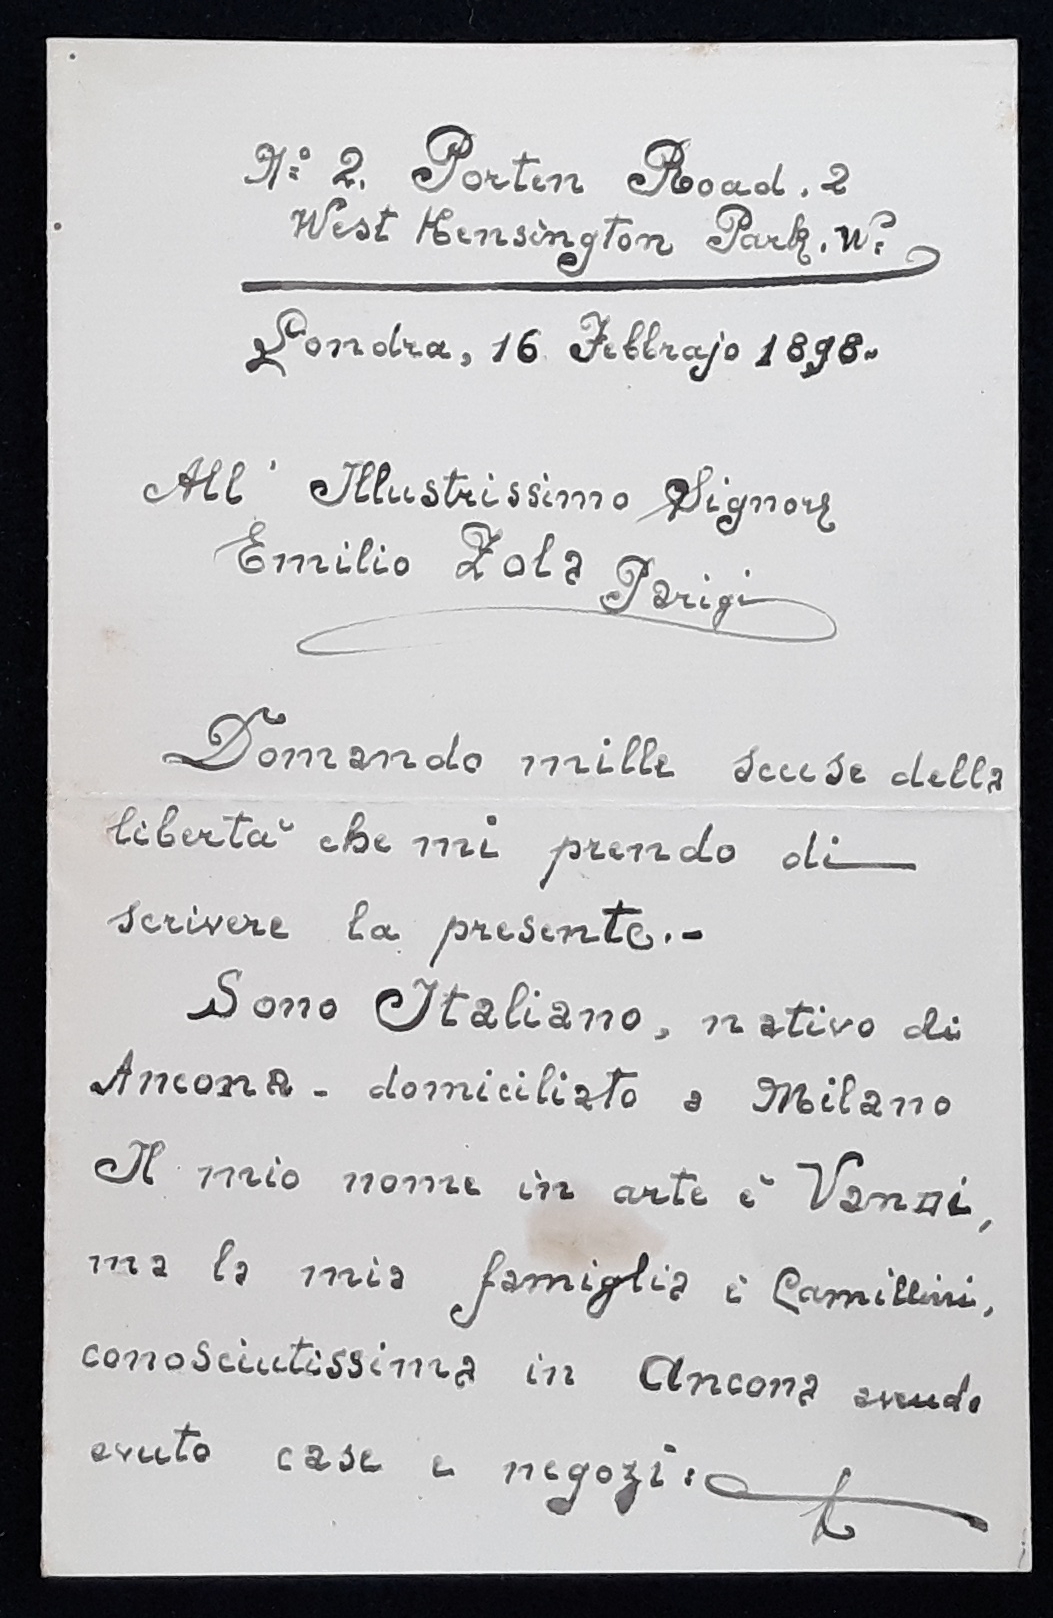 N:° 2. Porten Road. 2
West Kensington Park. W.
Londra, 16 Febbrajo 1898.
All' Illustrissimo Signor
Emilio Zola
Parigi
Domando mille scuse della
libertà che mi prendo di
scrivere la presente.-
Sono Italiano, nativo di
Ancona - domiciliato a Milano
Il mio nome in arte è
ma la mia famiglia è Camillini,
conosciutissima in Ancona avendo
avuto case e negozi: